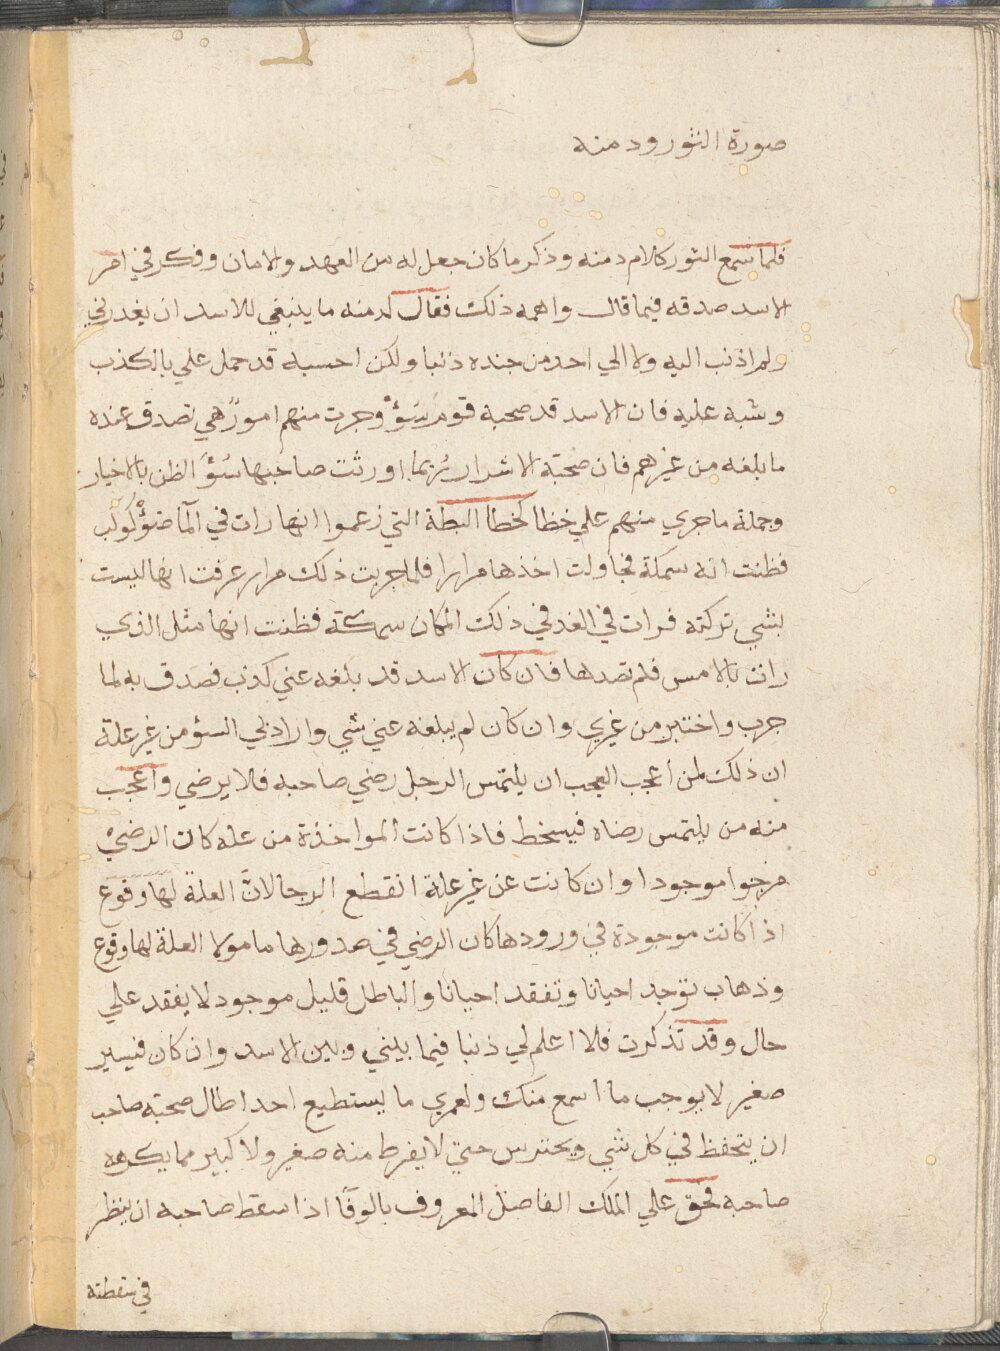 صورة الثور ودمنه
فلما سمع الثور كلام دمنه وذكر ما كان جعل له من العهد والامان وفكر في امر
الاسد صدقه فيما قال واهمه ذلك فقال لدمنه ما ينبغي للاسد ان يغدرني
ولم اذنب اليه ولا الي احد من جنده ذنبا ولكن احسبه قد حمل علي بالكذب
وشبه عليه فان الاسد قد صحبة قوم سَؤْ وجرت منهم امورٌ هي تصدق عنده
ما بلغه من غيرهم فان صحبَة الاشرار رُبما اورثت صاحبها سُؤَ الظن بالاخيار
وجملة ما جري منهم علي خطا كخطا البطة التي زعموا انها رات في المآ ضوْ كَوكَب
فظنت انه سمكة فحاولت اخذها مرارا فلما جربت ذلك مرار عرفت انها ليست
بشي تركته فرات في الغد في ذلك المكان سمكة فظنت انها مثل الذي
رات بالامس فلم تصدها فان كان الاسد قد بلغه عني كذب فصدق به لما
جرب واختبر من غيري وان كان لم يبلغه عني شي واراد لي السؤ من غير علة
ان ذلك لمن اعجب العجب ان يلتمس الرجل رضي صاحبه فلا يرضي واعجب
منه من يلتمس رضاه فيسخط فاذا كانت المواخذة من عله كان الرضي
مرجوا موجودا وان كانت عن غير علة انقطع الرجا لانَّ العلة لها وقوع
اذا كانت موجودة في ورودها كان الرضي في صدورها مامولا العلة لها وقوع
وذهاب توجد احيانا وتفقد احيانا والباطل قليل موجود لا يفقد علي
حال وقد تذكرت فلا اعلم لي ذنبا فيما بيني وبين الاسد وان كان فيسير
صغير لا يوجب ما اسمع منك ولعمري ما يستطيع احد اطال صحبته صاحب
ان يتحفظ في كل شي ويحترس حتي لا يفرط منه صغير ولا كبير مما يكره
صاحبه فحق علي الملك الفاضل المعروف بالوفآ اذا سقط صاحبه ان ينظر
في سقطته